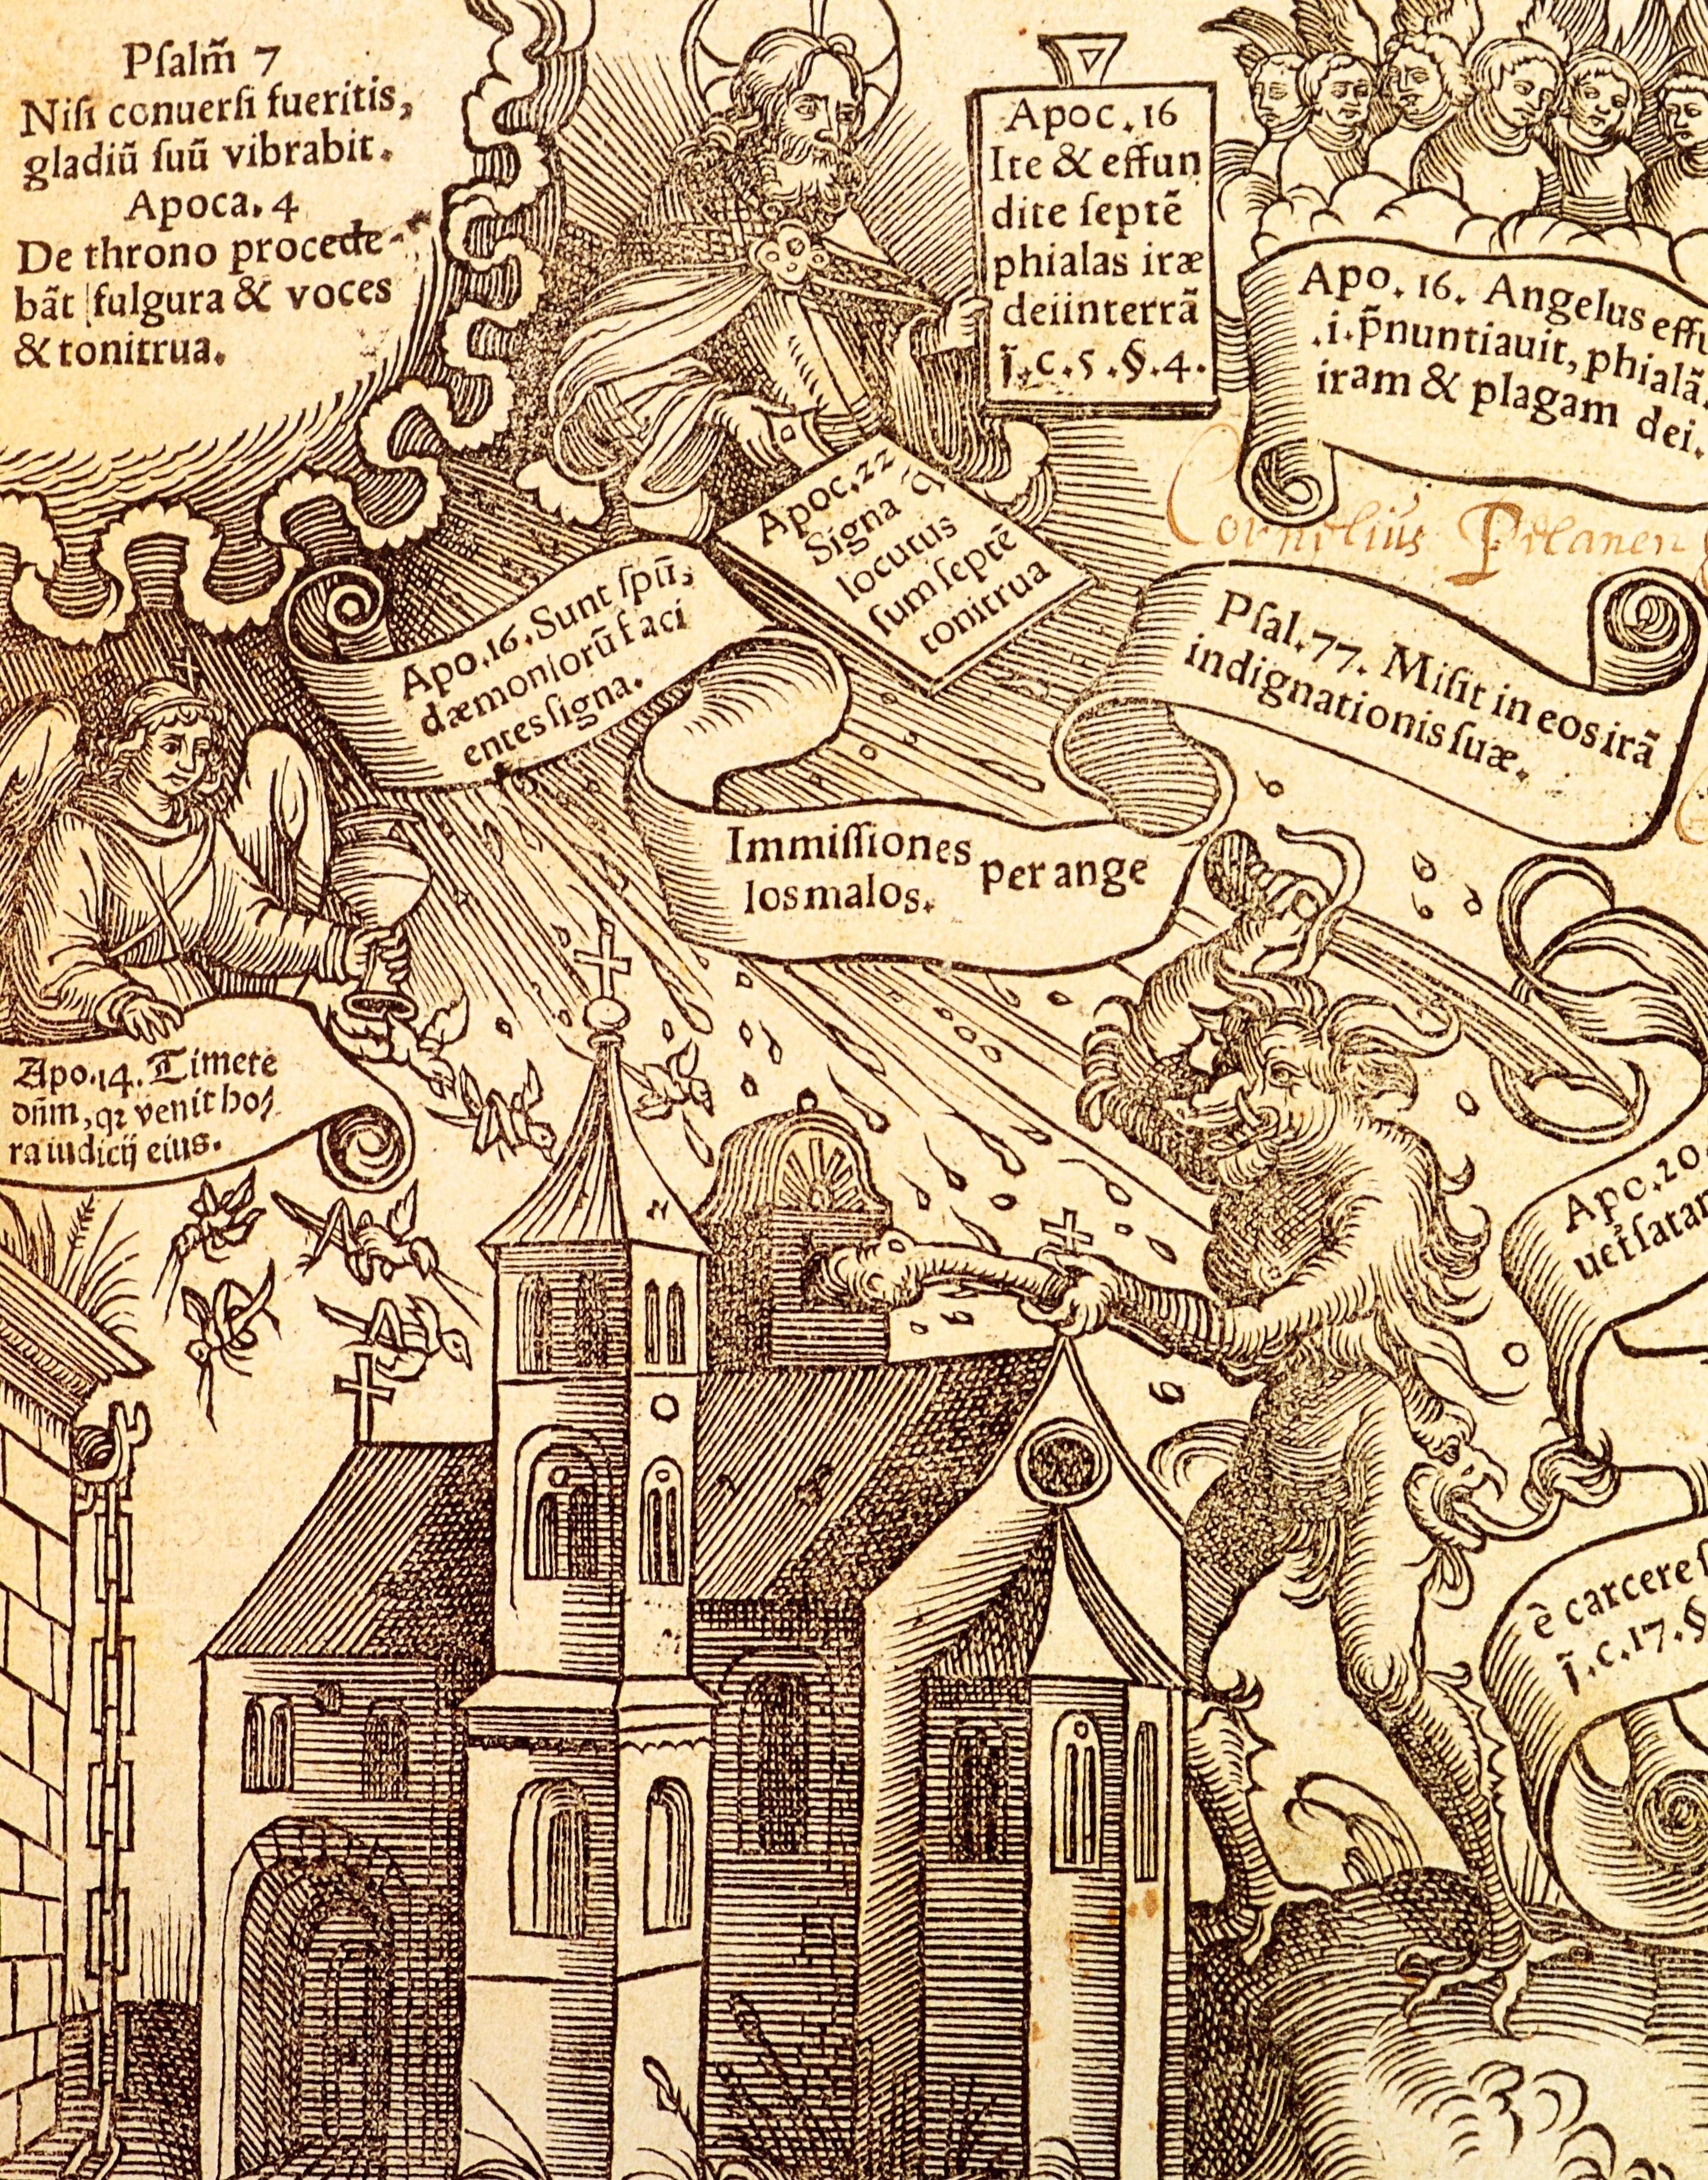 Pſalm̃ 7
Niſi conuerſi fueritis,
gladiũ ſuũ vibrabit.
Apoca. 4
De throno procede-
bãt fulgura & voces
& tonitrua.
Apoc. 16
Ite & effun
dite ſeptẽ
phialas iræ
deiinterrã
j̃.c.5.§.4.
Apo. 16. Angelus effu
.i.p̃nuntiauit, phialã
iram & plagam dei.
Apoc. 22
Signa q̃
locutus
ſum ſeptẽ
tonitrua
Cornelius
Apo. 16. Sunt ſpũ,
dæmoniorũ faci
entes ſigna.
Pſal. 77. Miſit in eos irã
indignationis ſuæ.
Immiſſiones per ange
los malos.
Apo. 14. Timete
dñm, qz venit ho/
ra iudicij eius.
Apo. 20.
è carcere
j̃.c.17.§